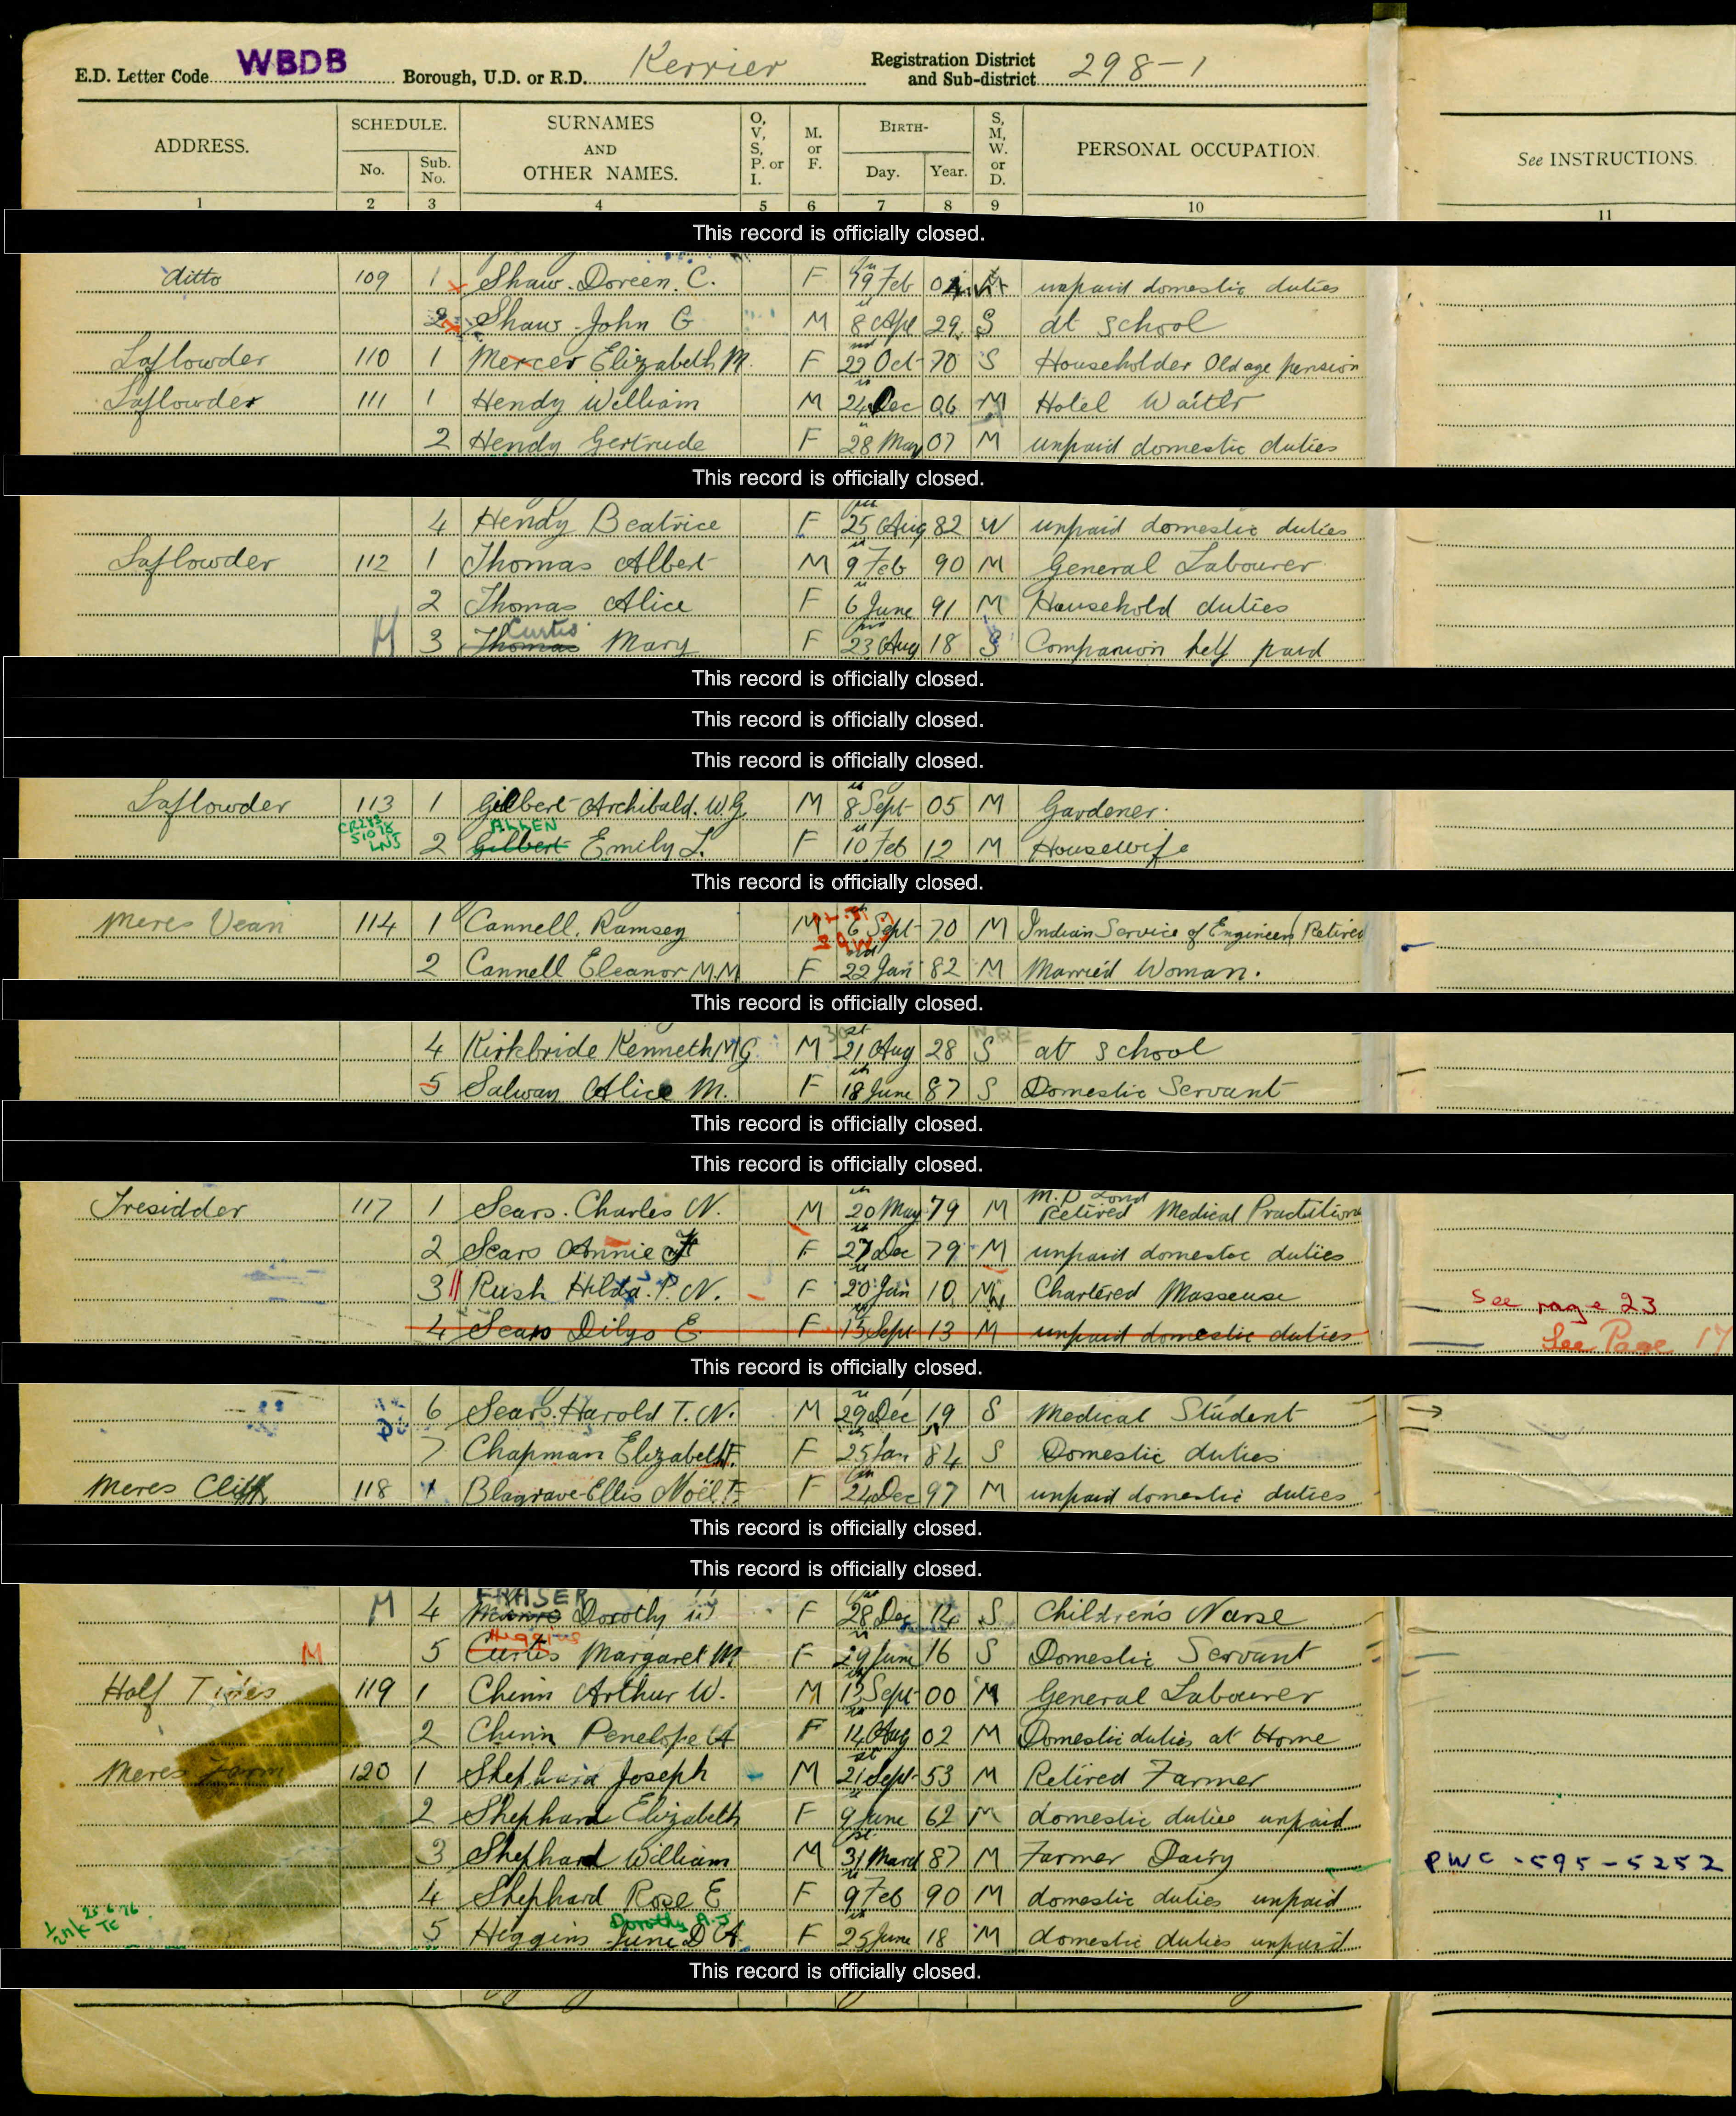 E.D. Letter Code WBDB Borough, U.D. or R.D. Kerrier Registration District and Sub-district 298-1
ADDRESS. SCHEDULE. No. Sub. No. SURNAMES AND OTHER NAMES. O, V, S, P. or I. M. or F. BIRTH- Day. Year. S, M, W. or D. PERSONAL OCCUPATION. See INSTRUCTIONS.
1 2 3 4 5 6 7 8 9 10 11
This record is officially closed.
ditto 109 1 Shaw. Doreen. C. F 19 Feb unpaid domestic duties
2 Shaw John G M 8 Apl 29 S at school
Laflowder 110 1 Mercer Elizabeth M. F 22 Oct 70 S Householder Old age pension
Laflowder 111 1 Hendy William M 24 Dec 06 M Hotel Waiter
2 Hendy Gertrude F 28 May 07 M unpaid domestic duties
This record is officially closed.
4 Hendy Beatrice F 25 Aug 82 W unpaid domestic duties
Laflowder 112 1 Thomas Albert M 9 Feb 90 M General Labourer
2 Thomas Alice F 6 June 91 M Household duties
M 3 Thomas Curtis Mary F 23 Aug 18 S Companion help paid
This record is officially closed.
This record is officially closed.
This record is officially closed.
Laflowder 113 1 Gilbert Archibald. W.G. M 8 Sept 05 M Gardener.
2 Gilbert ALLEN Emily L. F 10 Feb 12 M Housewife
This record is officially closed.
Meres Vean 114 1 Cannell. Ramsey M 6 Sept 70 M Indian Service of Engineers Retired
2 Cannell Eleanor M.M F 22 Jan 82 M Married Woman.
This record is officially closed.
4 Kirkbride Kenneth M G. M 21 Aug 28 S at school
5 Salway Alice M. F 18 June 87 S Domestic Servant
This record is officially closed.
This record is officially closed.
Tresidder 117 1 Sears. Charles N. M 20 May 79 M M.D Lond Retired Medical Practitioner
2 Sears Annie F 27 Dec 79 M unpaid domestic duties
3 Rush Hilda. P. N. F 20 Jan 10 M Chartered Masseuse See page 23
4 Sears Dilys E F 15 Sept 13 M unpaid domestic duties See Page 17
This record is officially closed.
6 Sears. Harold T. N. M 29 Dec 19 S Medical Student
7 Chapman Elizabeth F. F 25 Jan 84 S Domestic duties
Meres Cliff 118 1 Blagrave-Ellis Noël F. F 24 Dec 97 M unpaid domestic duties
This record is officially closed.
This record is officially closed.
M 4 FRASER Dorothy F 28 Dec 14 S Children's Nurse
M 5 Curtis Higgins Margaret M F 29 June 16 S Domestic Servant
Half Tides 119 1 Chinn Arthur W. M 13 Sept 00 M General Labourer
2 Chinn Penelope A F 14 Aug 02 M Domestic duties at Home
Meres Farm 120 1 Shephard Joseph M 21 Sept 53 M Retired Farmer
2 Shephard Elizabeth F 9 June 62 M domestic duties unpaid
3 Shephard William M 31 March 87 M Farmer Dairy PWC-595-5252
4 Shephard Rose E F 9 Feb 90 M domestic duties unpaid
5 Higgins June D A Dorothy A.J F 25 June 18 M domestic duties unpaid
This record is officially closed.